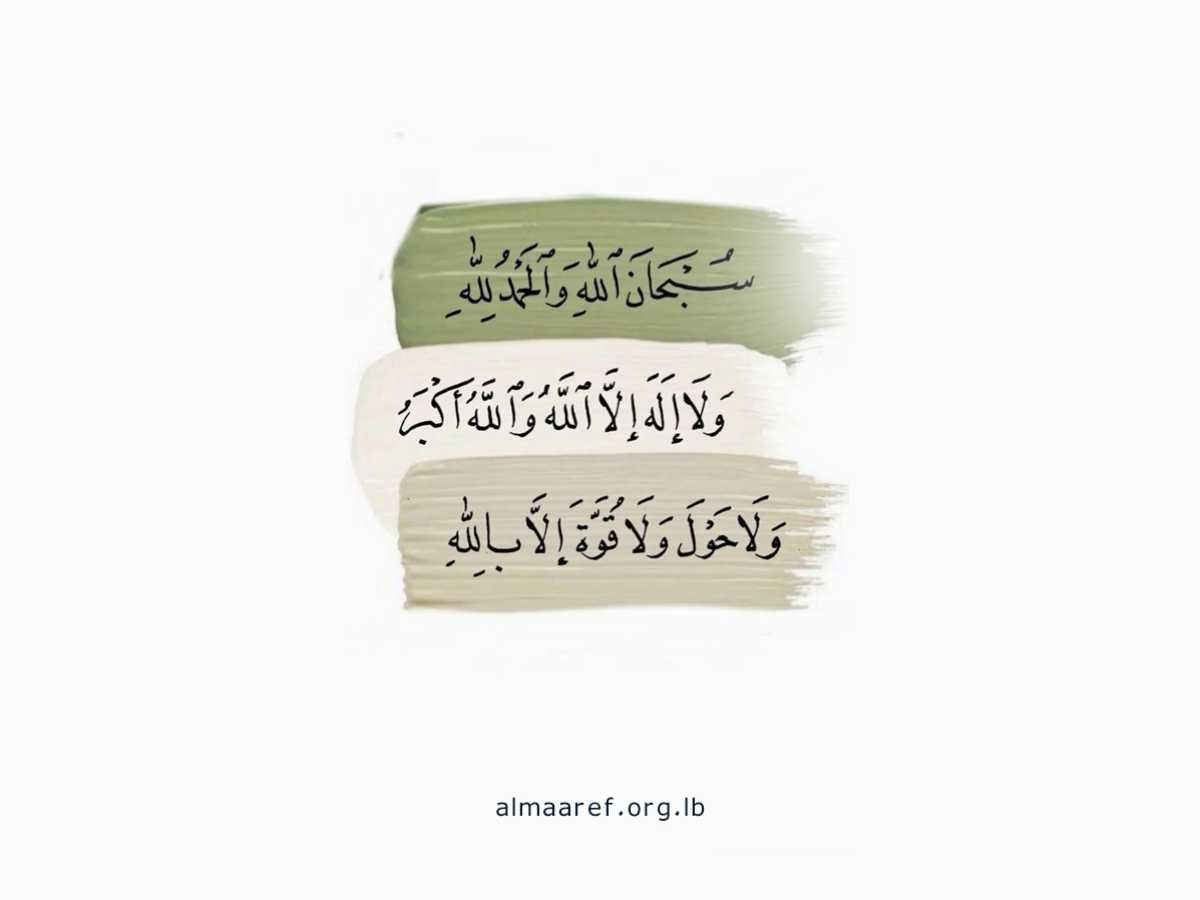 سُبْحَانَ ٱللَّهِ وَٱلْحَمْدُ لِلَّهِ
وَلَا إِلَهَ إِلَّا ٱللَّهُ وَٱللَّهُ أَكْبَرُ
وَلَا حَوْلَ وَلَا قُوَّةَ إِلَّا بِاللَّهِ
almaaref.org.lb